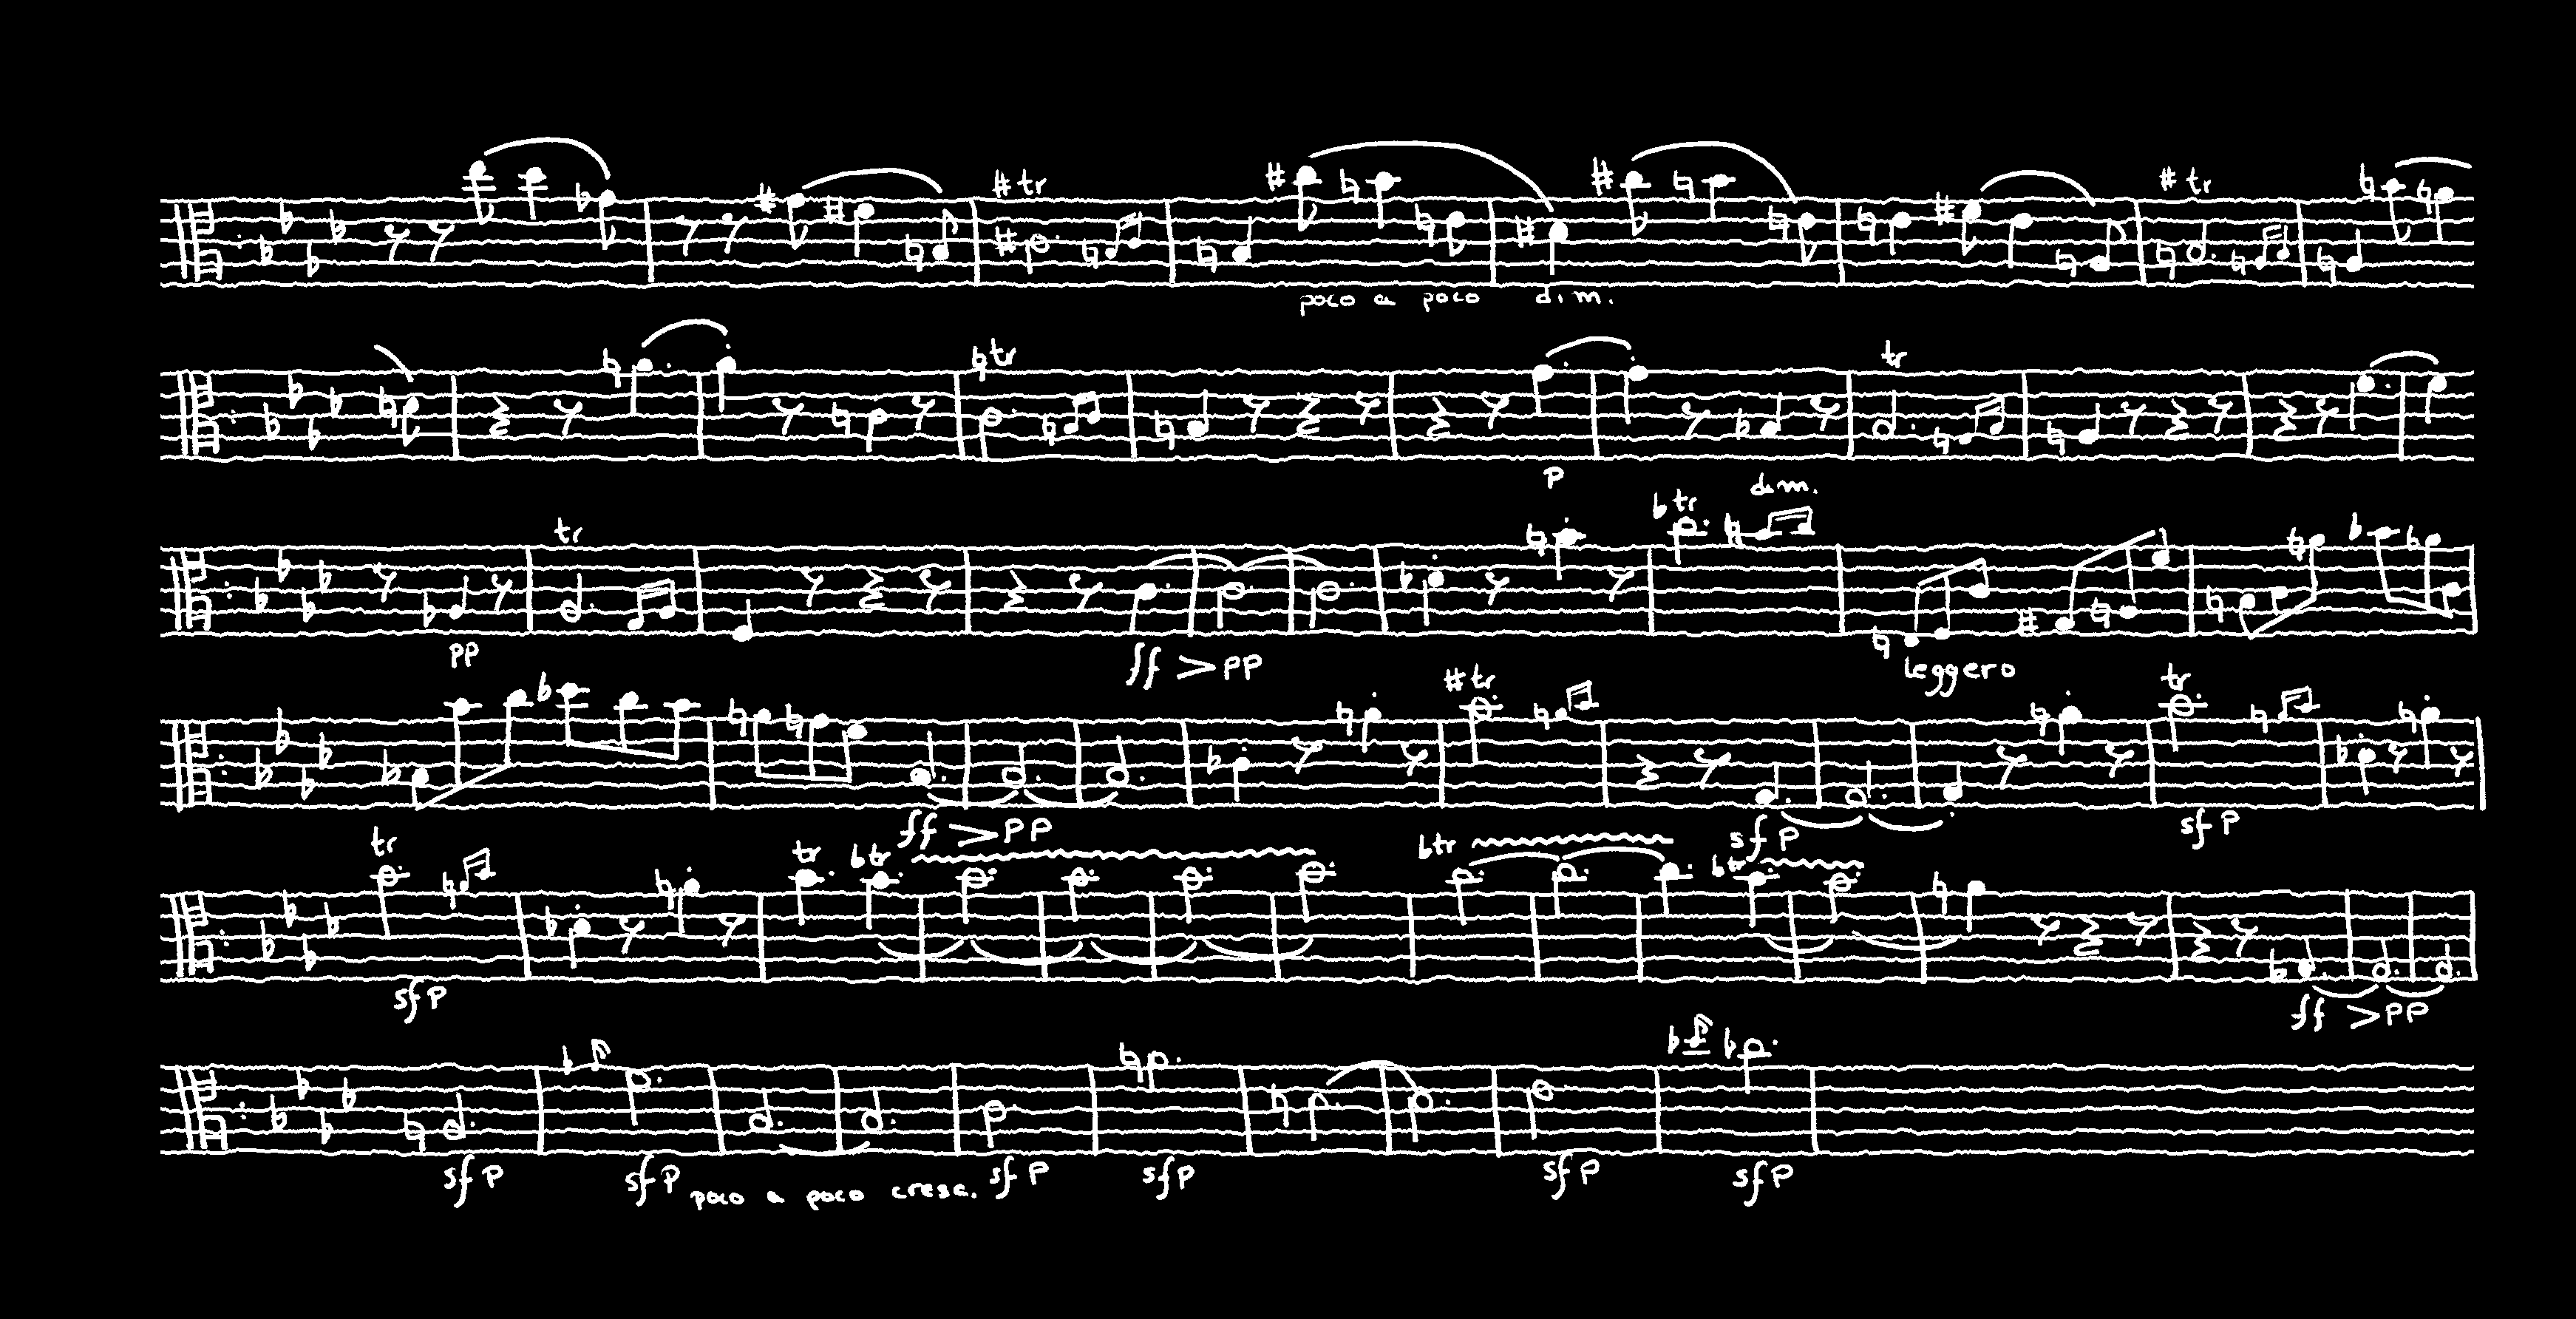 tr
poco a poco dim.
tr
tr
tr
p
tr
tr
dim.
pp
ff > pp
leggero
tr
tr
ff > pp
sf p
sf p
tr
tr
tr
tr
tr
sf p
ff > pp
sf p
sf p
poco a poco cresc.
sf p
sf p
sf p
sf p